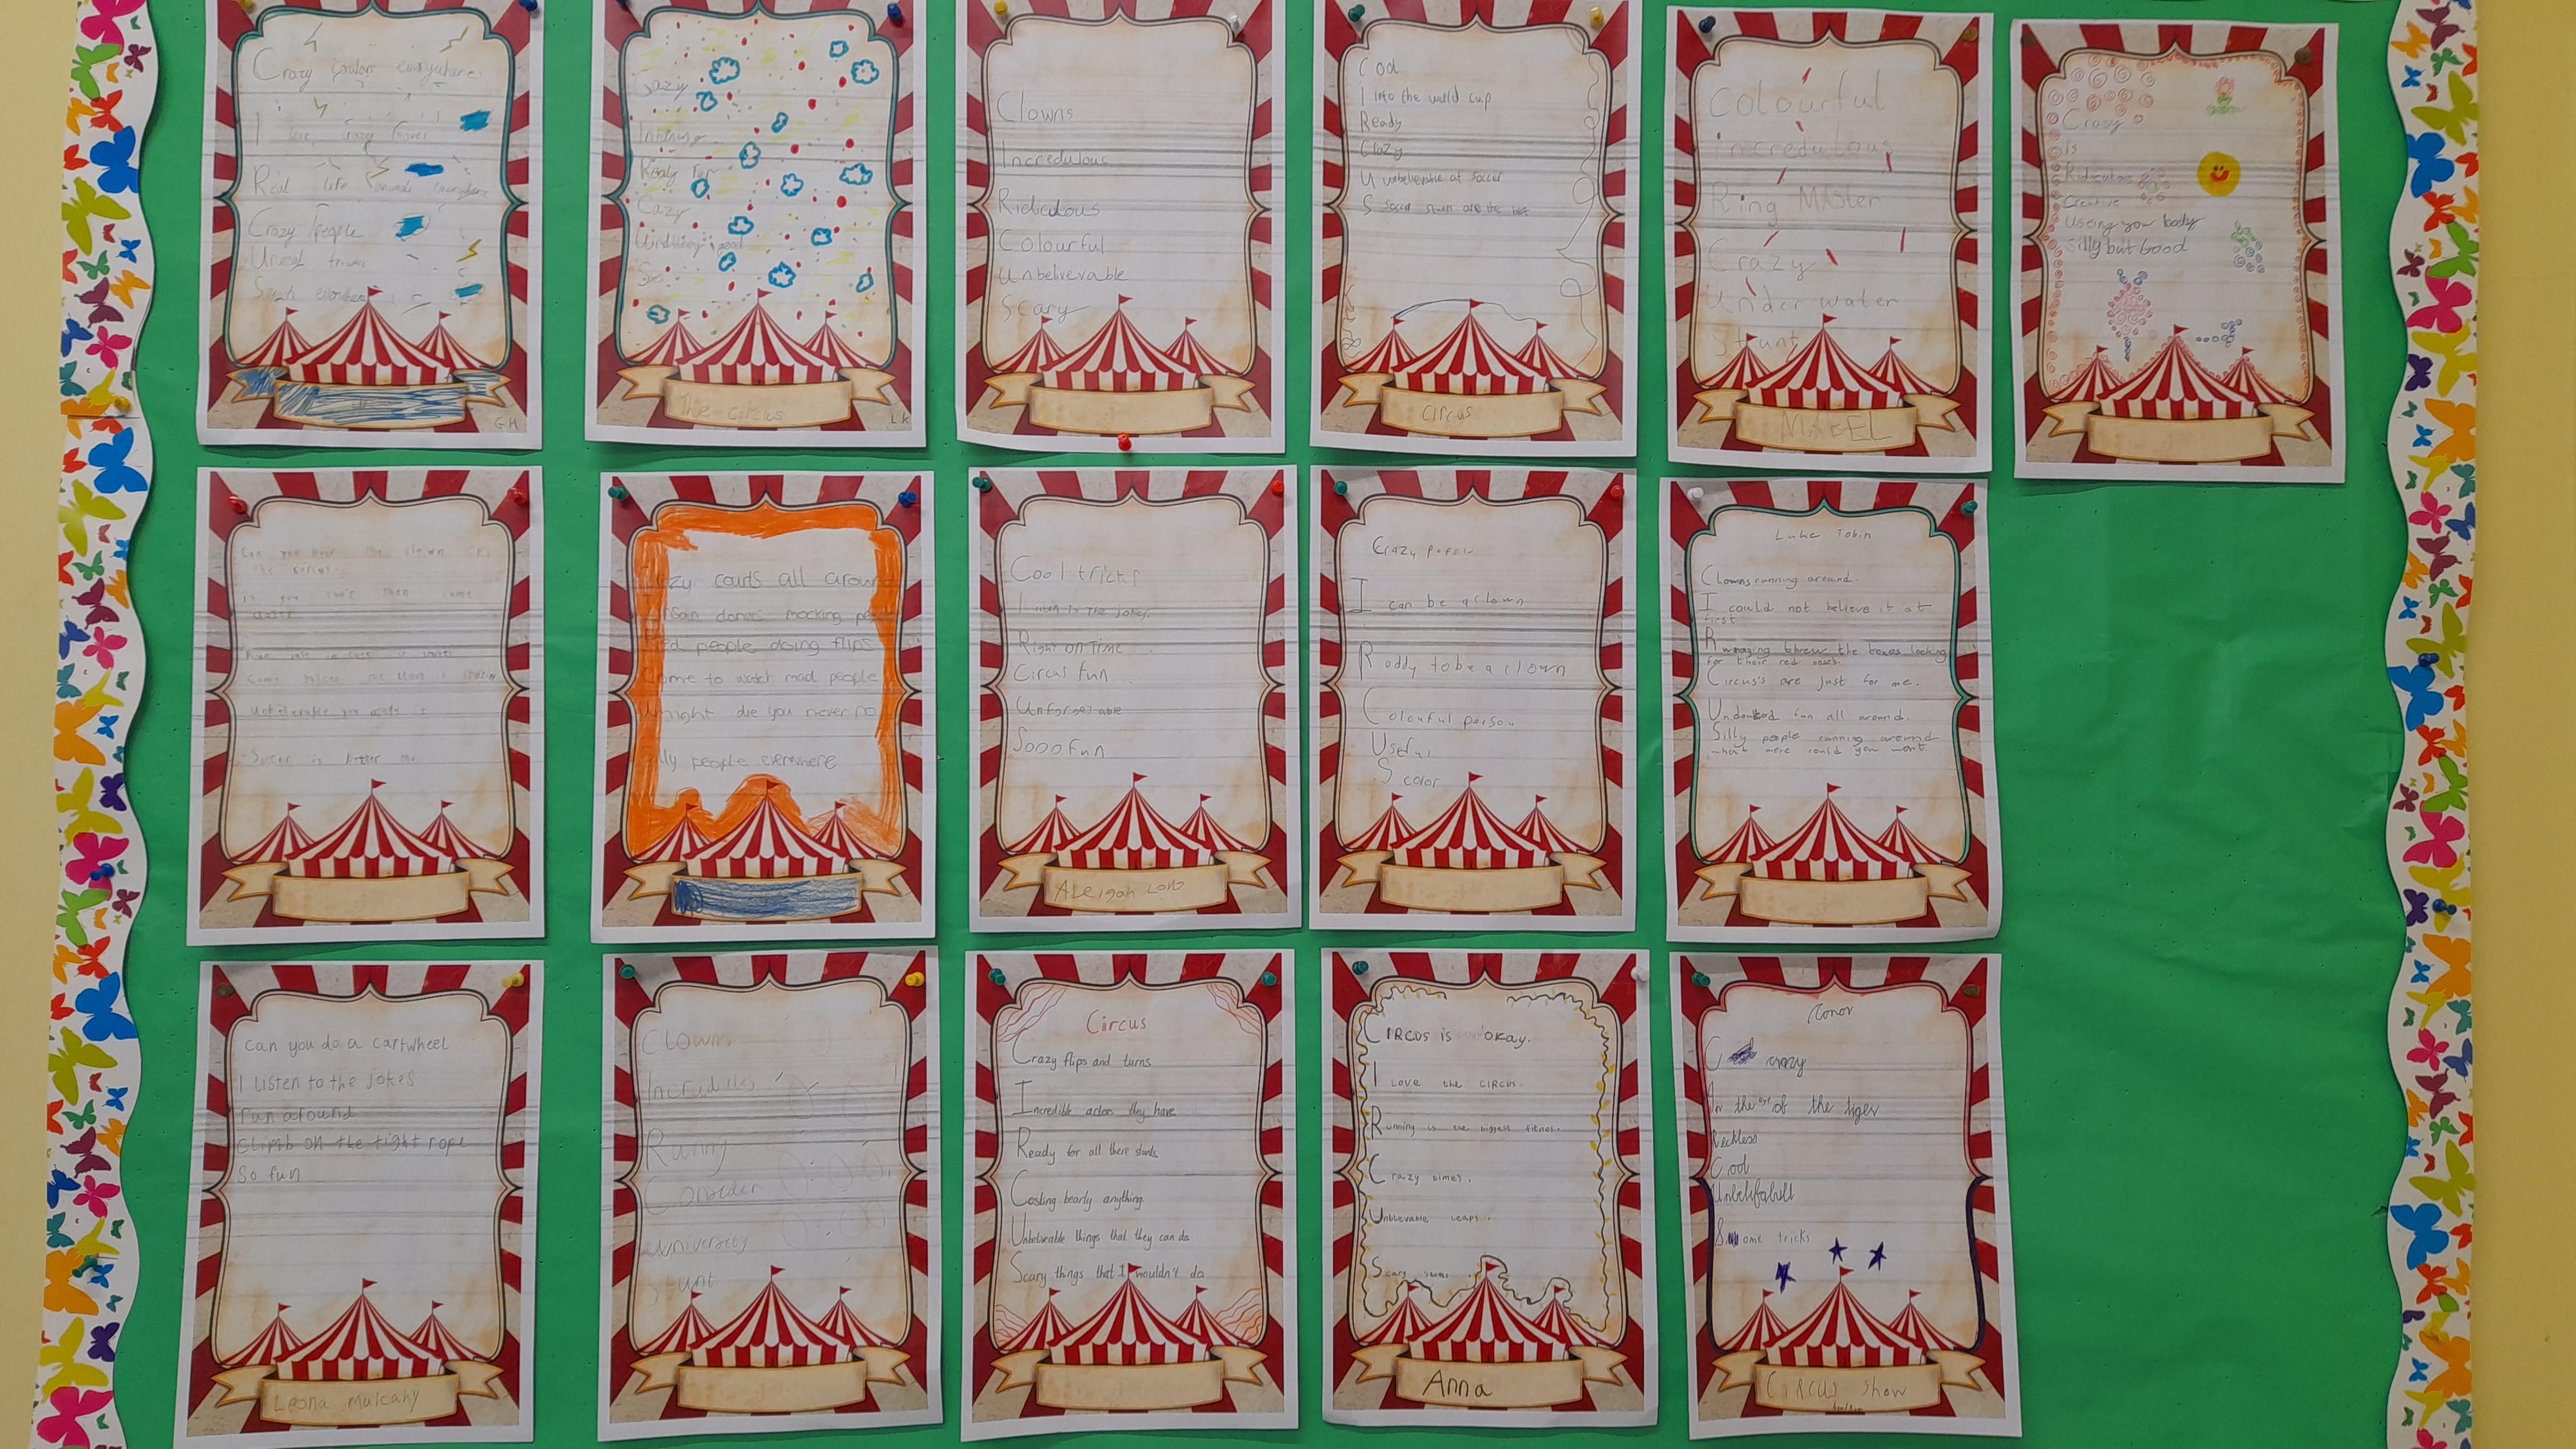 Crazy colors everywhere.
I love crazy
Real life animals everywhere
Crazy people
Unreal
everywhere
GH
Crazy
Really fun
Cazy
The circus
LK
Clowns
Incredulous
Ridiculous
Colourful
Unbelievable
Scary
Cool
I into the world cup
Ready
Crazy
U unbelievable at soccer
S soccer stunts are the best
Circus
Colourful
incredulous
Ring MASter
Crazy
Under water
Stunt
MABEL
Crasy
Is
Ridiculous
Creative
Useing your body
Silly but Good
Can you hear the clown its
the circus.
is you can't then come
Unbelievable you
Soccer is
zy courts all aroun
mocking peo
people doing flips
ome to watch mad people
U might die you never no
lly people everwhere
Cool tricks
I listen to the jokes.
Right on Time
Circus fun
Unforgetable
Sooo Fun
Aleigah Long
Crazy
I can be a clown
Roddy to be a clown
Colourful person
Useful
S color
Luke Tobin
Clowns running around.
I could not believe it at
first
Rumaging threw the boxes looking
for their red noses.
Circus's are just for me.
fun all around.
Silly people running around
what more could you want.
can you do a cartwheel
I listen to the jokes
run around
climb on the tight rope
So fun
Leona Mulcahy
Clowns
Runny
Consider
university
Stunt
Circus
Crazy flips and turns
Incredible actors they have
Ready for all there stunts
Costing bearly anything
Unbeliveable things that they can do
Scary things that I wouldn't do
CIRCUS is okay.
I Love the CIRCUS.
Running is the biggest fitnes.
Crazy times.
Unblievable leaps.
Scary
Anna
Conor
C crazy
In the eye of the tiger
Reckless
Cool
Some tricks
CIRCUS Show